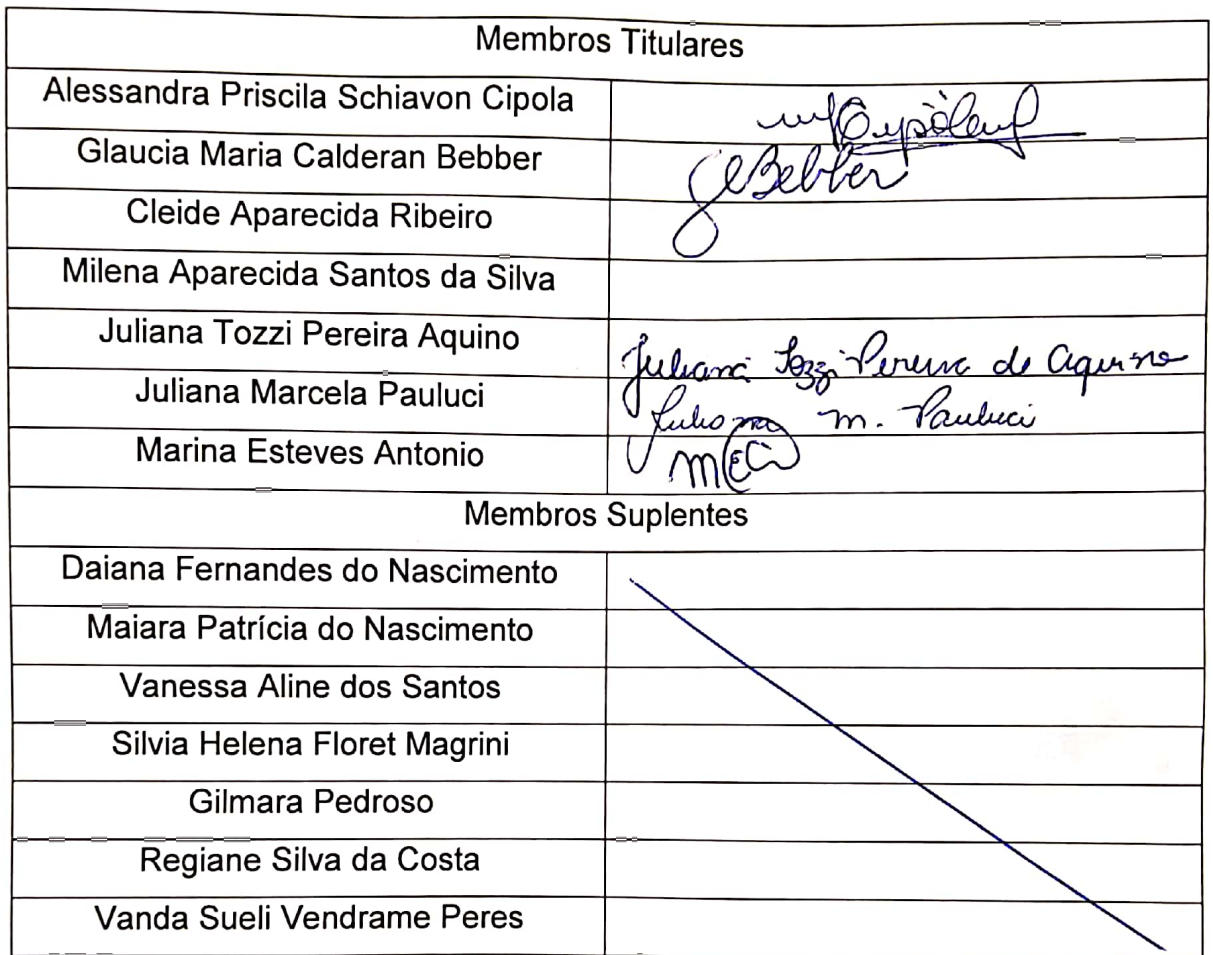 Membros Titulares
Alessandra Priscila Schiavon Cipola
Glaucia Maria Calderan Bebber
GBebber
Cleide Aparecida Ribeiro
Milena Aparecida Santos da Silva
Juliana Tozzi Pereira Aquino
Juliana Tozzi Pereira de Aquino
Juliana Marcela Pauluci
Juliana M. Pauluci
Marina Esteves Antonio
Membros Suplentes
Daiana Fernandes do Nascimento
Maiara Patrícia do Nascimento
Vanessa Aline dos Santos
Silvia Helena Floret Magrini
Gilmara Pedroso
Regiane Silva da Costa
Vanda Sueli Vendrame Peres